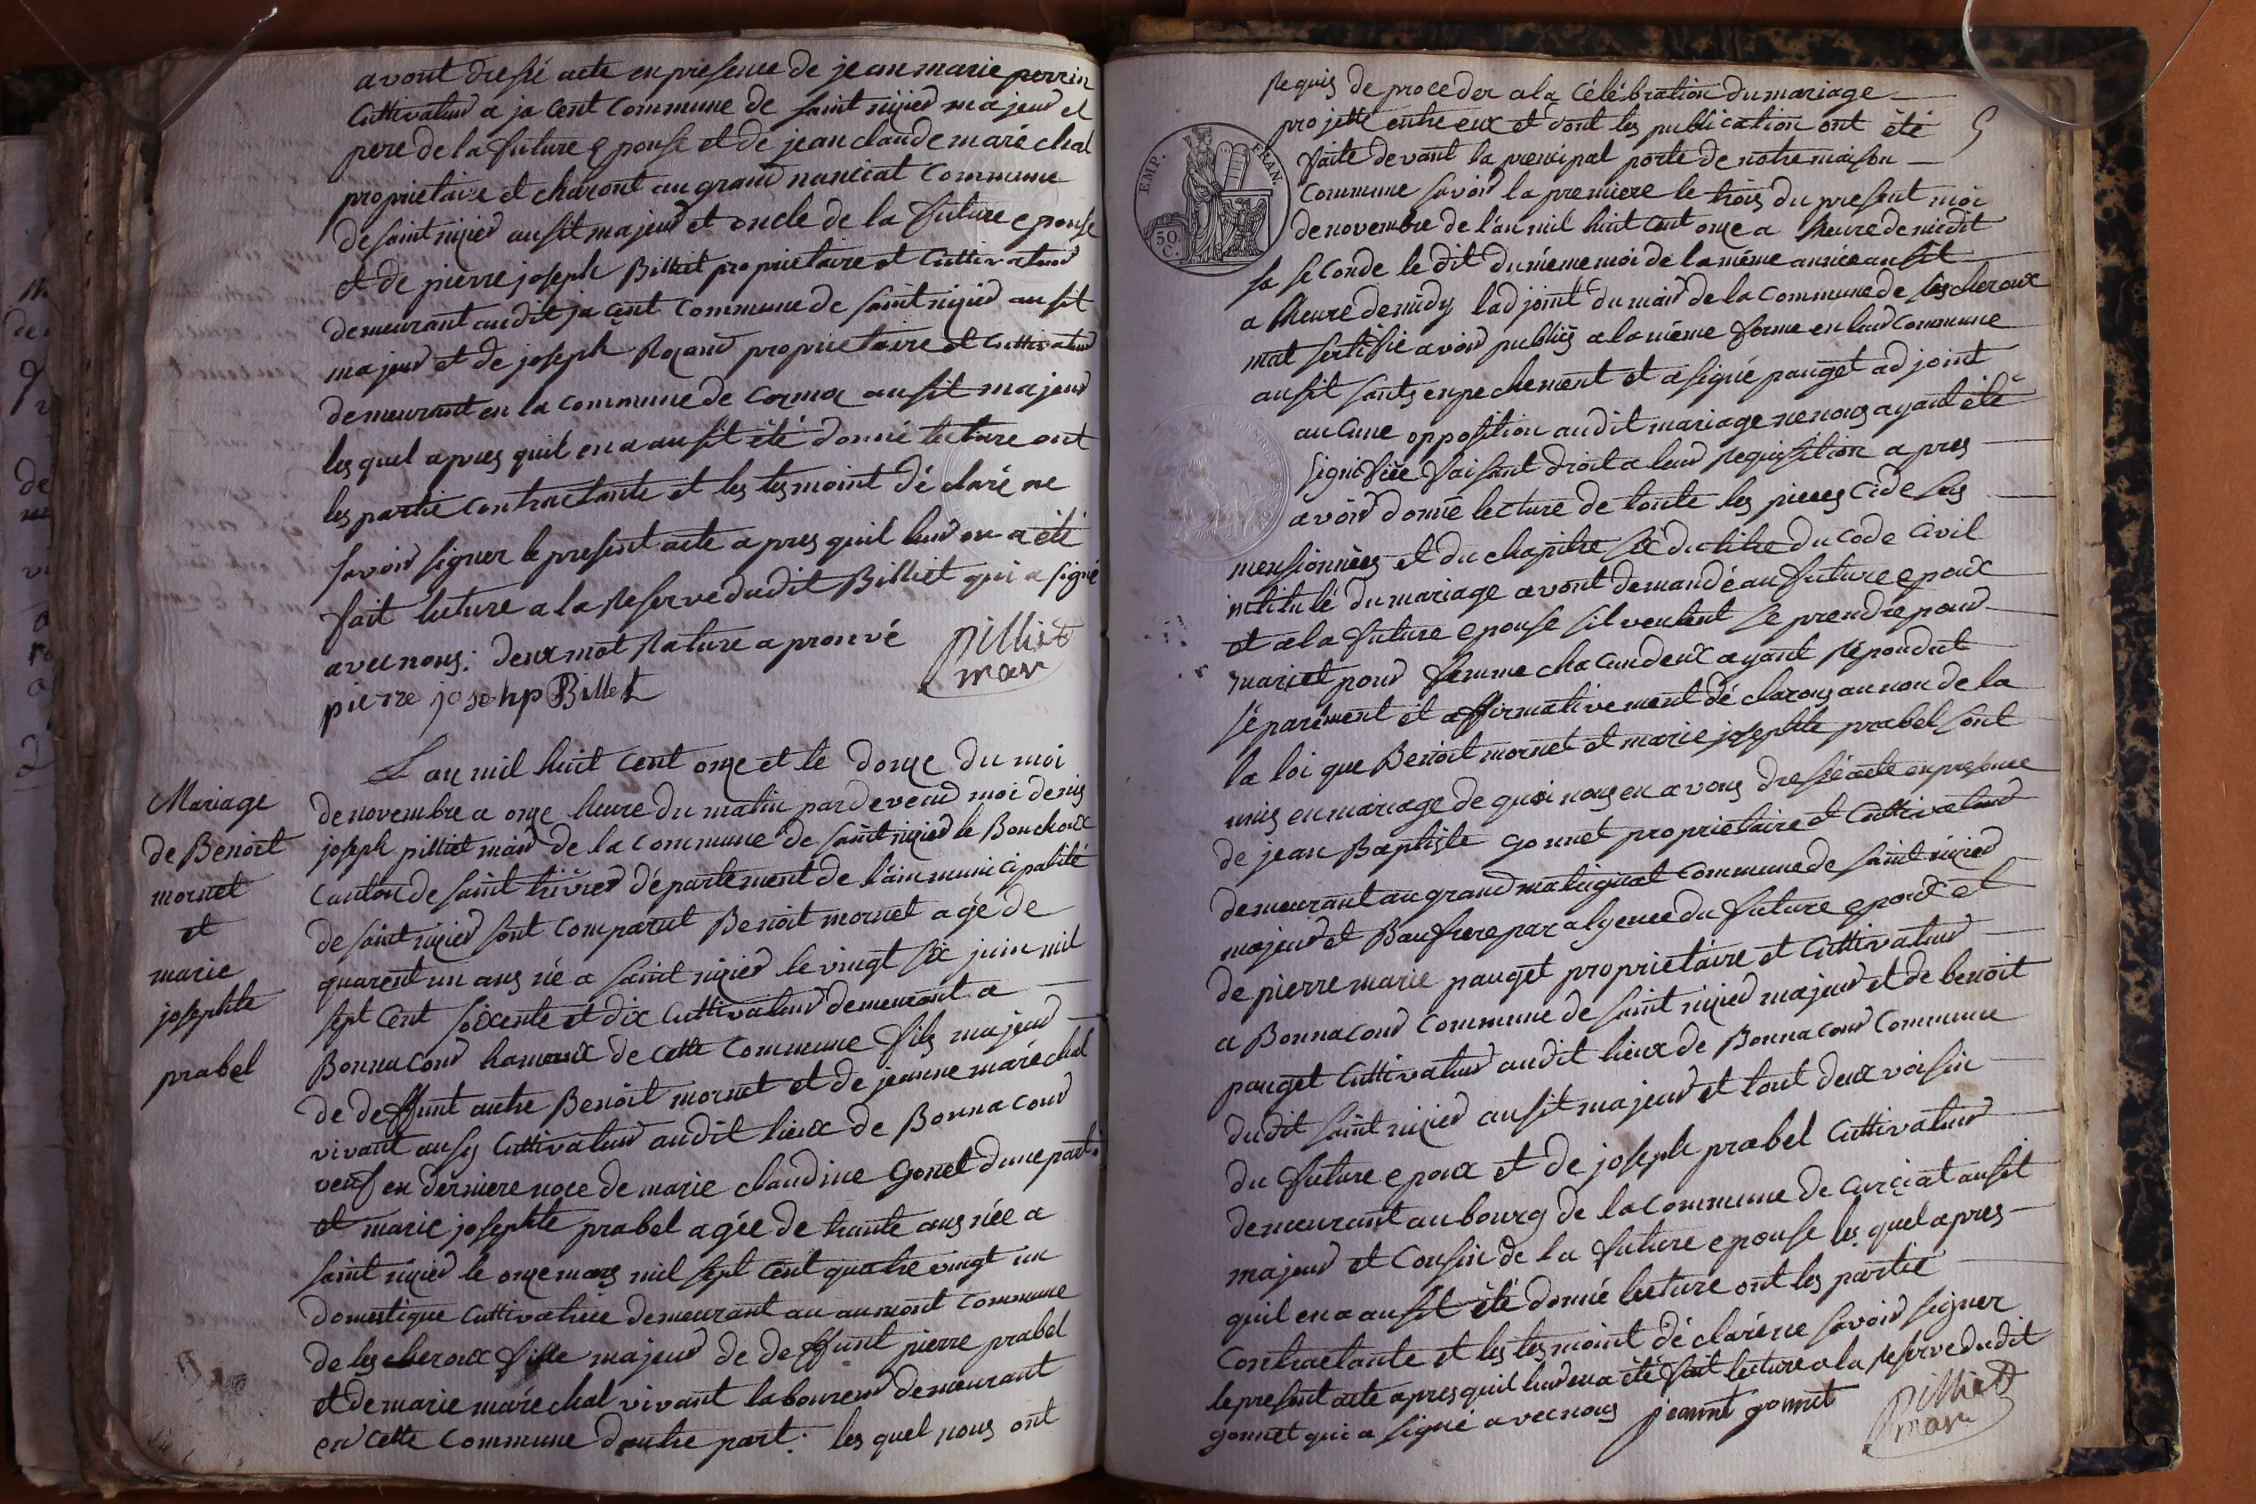 avont dressé acte en presence de jean marie perrin
Cultivateur a ja Cent Commune de saint nizier majeur et
pere de la future epouse et de jean claude maréchal
proprietaire et charont au grand nanciat Commune
de saint nizier ausit majeur et oncle de la future epouse
et de pierre joseph Billiet proprietaire et Cultivateur
demeurant audit ja Cent Commune de saint nizier ausit
majeur et de joseph Rozand proprietaire et Cultivateur
demeurant en la commune de Cormoz ausit majeur
les quel apres quil en a ausit été donné lecture ont
les partie Contractante et les tesmoint déclaré ne
savoir signer le present acte apres quil leur en a été
fait luture a la Reserve dudit Billiet qui a signé
avec nous: deux mot Rature aprouvé
pilliet
mair
pierre josehp Billet
Mariage
de Benoit
mornet
et
marie
josephte
prabel
L an mil huit Cent onze et le douze du moi
de novembre a onze heure du matin pardevend moi denis
joseph pilliet mair de la commune de saint nizier le Bouchoux
Canton de saint trivier département de l'ain municipalité
de saint nizier sont Comparut Benoit mornet agé de
quarent un ans né a saint nizier le vingt six juin mil
sept Cent soixente et dix Cultivateur demeurant a
Bonnacour hameaux de Cette Commune fils majeur
de deffunt autre Benoit mornet et de jeanne maréchal
vivant ausy Cultivateur audit lieux de Bonnacour
veuf en derniere noce de marie claudine Gonet dune part.
et marie josephte prabel agée de trante ans née a
saint nizier le onze mars mil sept Cent quatre vingt un
domestique Cultivatrice demeurant au aumont Commune
de les cheroux fille majeur de deffunt pierre prabel
et de marie maréchal vivant laboureur demeurant
en Cette Commune dautre part. les quel nous ont
5
EMP. FRAN.
50
C.
Requis de proceder a la Célébration du mariage
projetté entre eux et dont les publication ont été
faite devant la prencipal porte de notre maison
Commune savoir la premiere le trois du present moi
de novembre de l'an mil huit Cent onze a heure de midit
la seconde le dit du méme moi de la méme année ausit
a heure de midy ladjoint du mair de la Commune de les cheroux
mat sertifie avoir publiés a la méme forme en leur Commune
ausit sants enpechement et a signé pauget adjoint
aucune opposition audit mariage ne nous ayant été
signifiée faisant droit a leur Requisition apres
avoir donné lecture de toute les pieces cide sus
mensionnées et du chapitre six du titre du Code Civil
intitulé du mariage avont demandé au future epoux
et a la future epouse sil veulent se prendre pour
mari et pour femme chacun deux ayant Répondut
séparément et affirmativement déclarons au non de la
la loi que Benoit mornet et marie josephte prabel sont
unis en mariage de quoi nous en avons dressé acte en presence
de jean Baptiste gonnet proprietaire et Cultivateur
demeurant au grand malagniat Commune de saint nizier
majeur et Baufrere par alyence du future epoux et
de pierre marie pauget proprietaire et Cultivateur
a Bonnacour Commune de saint nizier majeur et de benoit
pauget Cultivateur audit lieux de Bonnacour Commune
dudit saint nizier ausit majeur et tout deux voisin
du future epoux et de joseph prabel Cultivateur
demeurant au bourg de la Commune de curciat ausit
majeur et Cousin de la future epouse les quel apres
quil en a ausit été donné lecture ont les partie
Contractante et les tesmoint déclaré ne savoir signer
le present acte apres quil leur en a été fait lecture a la Reserve dudit
gonnet qui a signé avec nous jeannt gonnet
pilliet
mair